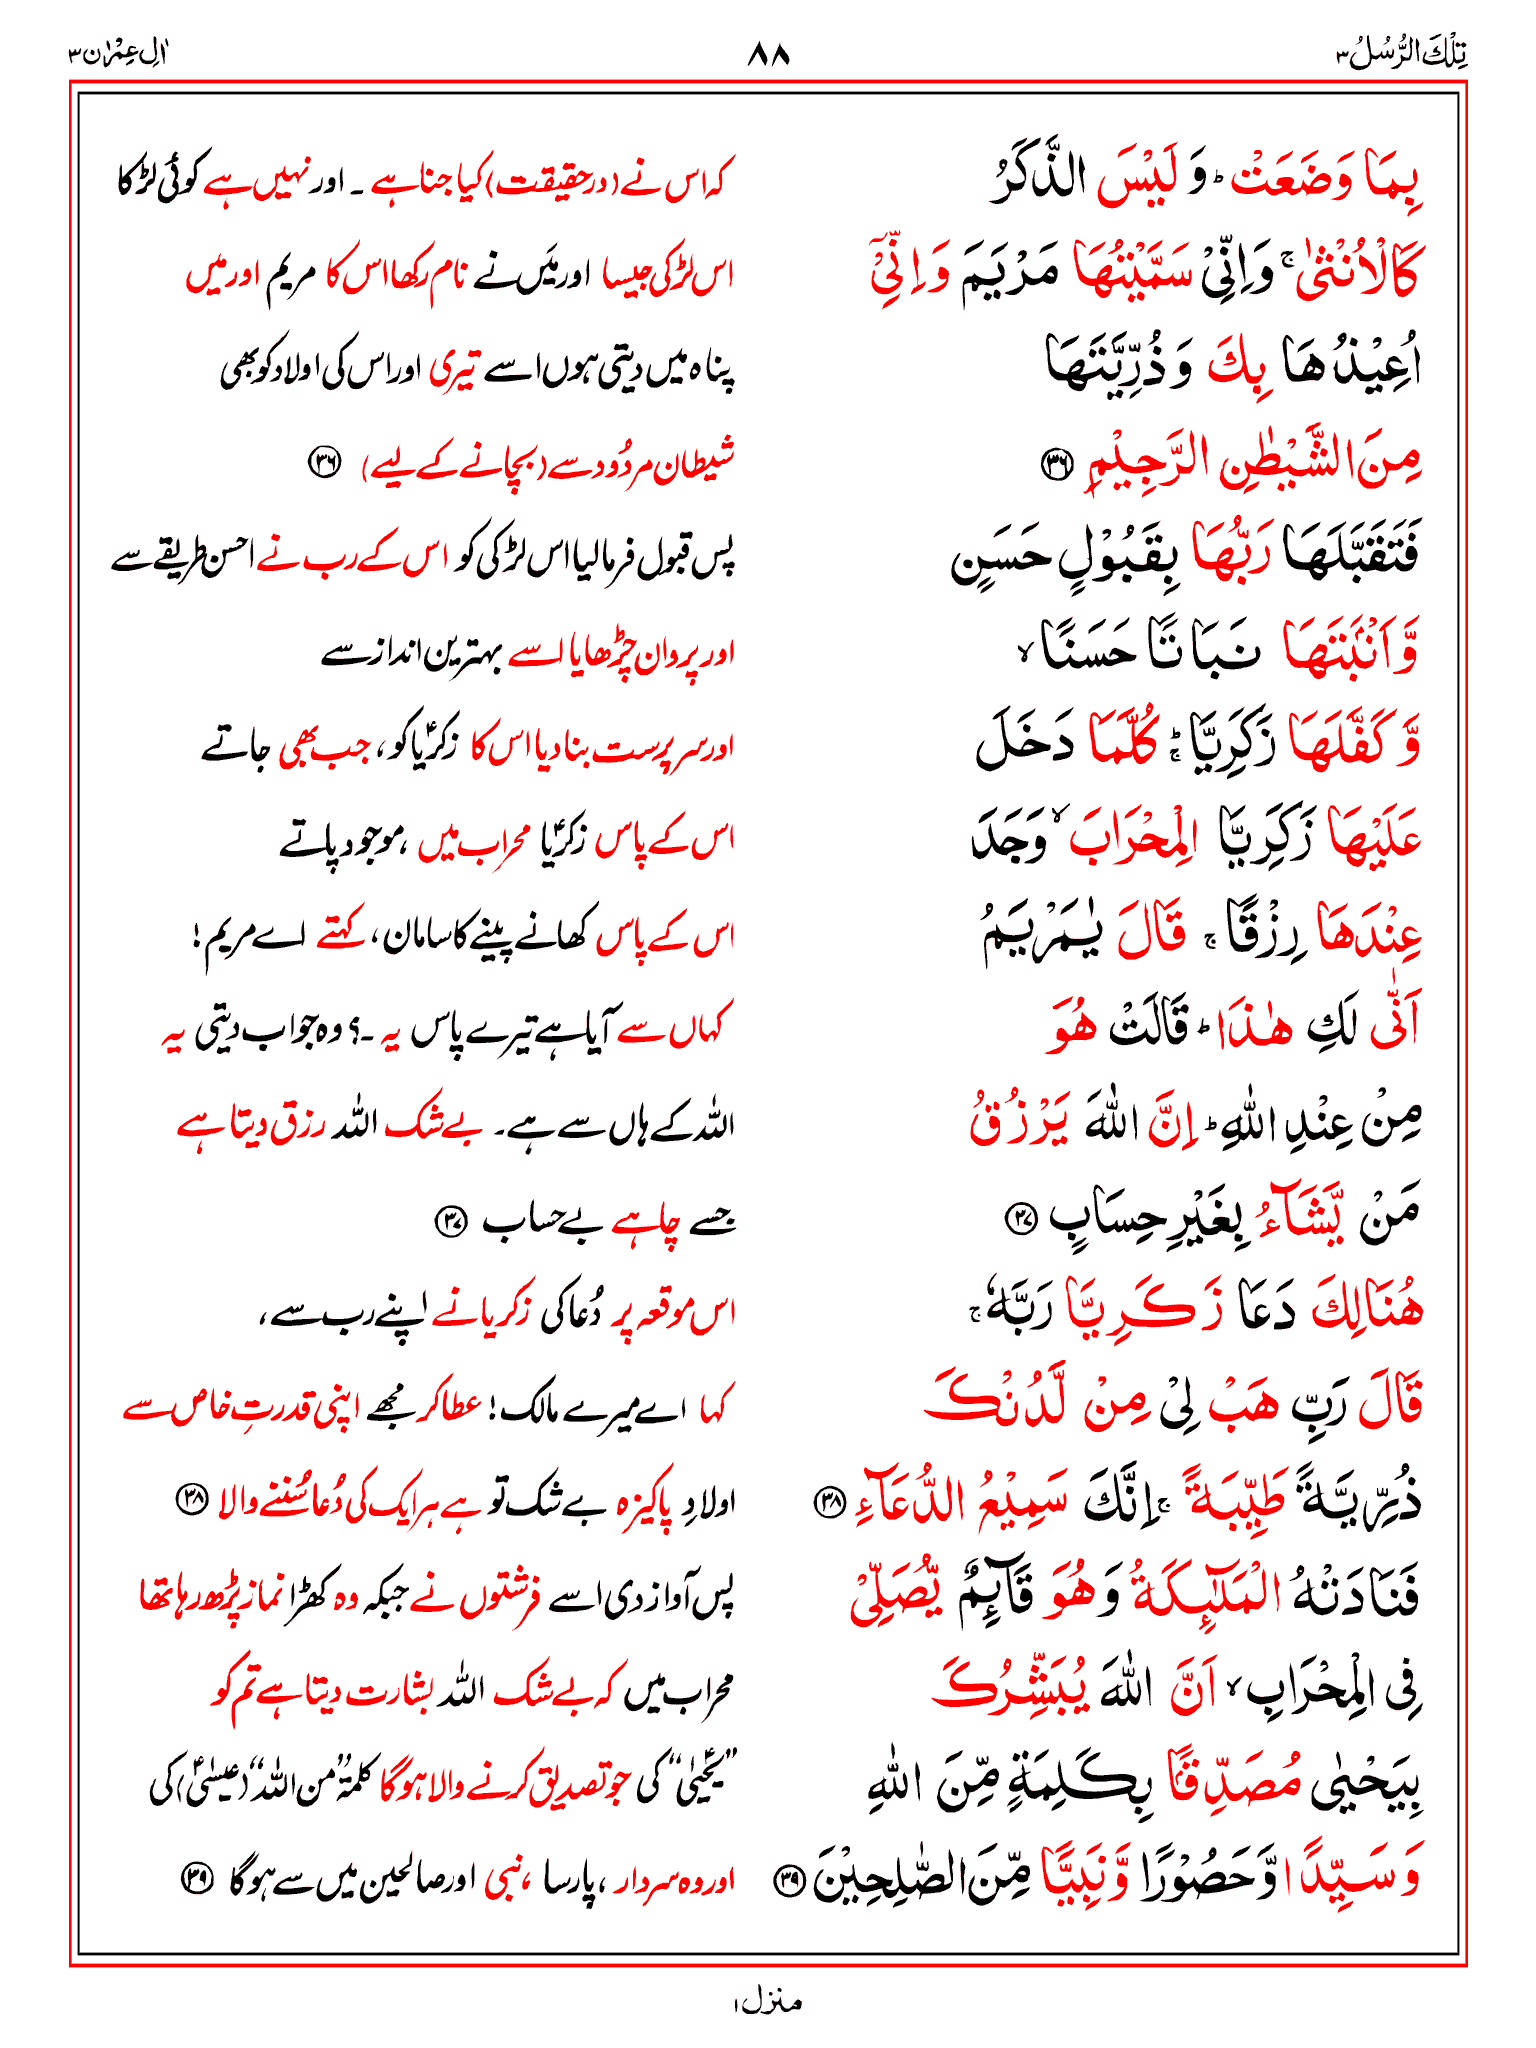 تِلْكَ الرُّسُلُ ۳
۸۸
اٰلِ عِمْرٰن ۳
بِمَا وَضَعَتْ ؕ وَ لَیْسَ الذَّكَرُ
كَالْاُنْثٰی ۚ وَاِنِّیْ سَمَّیْتُهَا مَرْیَمَ وَ اِنِّیْۤ
اُعِیْذُهَا بِكَ وَ ذُرِّیَّتَهَا
مِنَ الشَّیْطٰنِ الرَّجِیْمِ ۳۶
فَتَقَبَّلَهَا رَبُّهَا بِقَبُوْلٍ حَسَنٍ
وَّ اَنْۢبَتَهَا نَبَاتًا حَسَنًا ۙ
وَّ كَفَّلَهَا زَكَرِیَّا ۚؕ كُلَّمَا دَخَلَ
عَلَیْهَا زَكَرِیَّا الْمِحْرَابَ ۙ وَجَدَ
عِنْدَهَا رِزْقًا ۚ قَالَ یٰمَرْیَمُ
اَنّٰی لَكِ هٰذَا ؕ قَالَتْ هُوَ
مِنْ عِنْدِ اللّٰهِ ؕ اِنَّ اللّٰهَ یَرْزُقُ
مَنْ یَّشَآءُ بِغَیْرِ حِسَابٍ ۳۷
هُنَالِكَ دَعَا زَكَرِیَّا رَبَّهٗ ۚ
قَالَ رَبِّ هَبْ لِیْ مِنْ لَّدُنْكَ
ذُرِّیَّةً طَیِّبَةً ۚ اِنَّكَ سَمِیْعُ الدُّعَآءِ ۳۸
فَنَادَتْهُ الْمَلٰٓىِٕكَةُ وَ هُوَ قَآىِٕمٌ یُّصَلِّیْ
فِی الْمِحْرَابِ ۙ اَنَّ اللّٰهَ یُبَشِّرُكَ
بِیَحْیٰی مُصَدِّقًۢا بِكَلِمَةٍ مِّنَ اللّٰهِ
وَ سَیِّدًا وَّ حَصُوْرًا وَّ نَبِیًّا مِّنَ الصّٰلِحِیْنَ ۳۹
کہ اس نے (در حقیقت) کیا جنا ہے ۔ اور نہیں ہے کوئی لڑکا
اس لڑکی جیسا اور میَں نے نام رکھا اس کا مریم اور میں
پناہ میں دیتی ہوں اسے تیری اور اس کی اولاد کو بھی
شیطان مردُود سے (بچانے کے لیے) ۳۶
پس قبول فرما لیا اس لڑکی کو اس کے رب نے احسن طریقے سے
اور پروان چڑھایا اسے بہترین انداز سے
اور سرپرست بنا دیا اس کا زکریاؑ کو، جب بھی جاتے
اس کے پاس زکریاؑ محراب میں ،موجود پاتے
اس کے پاس کھانے پینے کا سامان، کہتے اے مریم!
کہاں سے آیا ہے تیرے پاس یہ ۔؟ وہ جواب دیتی یہ
اللہ کے ہاں سے ہے۔ بے شک اللہ رزق دیتا ہے
جسے چاہے بے حساب ۳۷
اس موقعہ پر دُعا کی زکریا نے اپنے رب سے،
کہا اے میرے مالک! عطا کر مجھے اپنی قدرتِ خاص سے
اولادِ پاکیزہ بے شک تو ہے ہر ایک کی دُعا سُننے والا ۳۸
پس آواز دی اسے فرشتوں نے جبکہ وہ کھڑا نماز پڑھ رہا تھا
محراب میں کہ بے شک اللہ بشارت دیتا ہے تم کو
”یحییٰؑ“ کی جو تصدیق کرنے والا ہوگا ”کلمۃ من اللہ“ (عیسیٰؑ) کی
اور وہ سردار ،پارسا ،نبی اور صالحین میں سے ہوگا ۳۹
منزل ۱